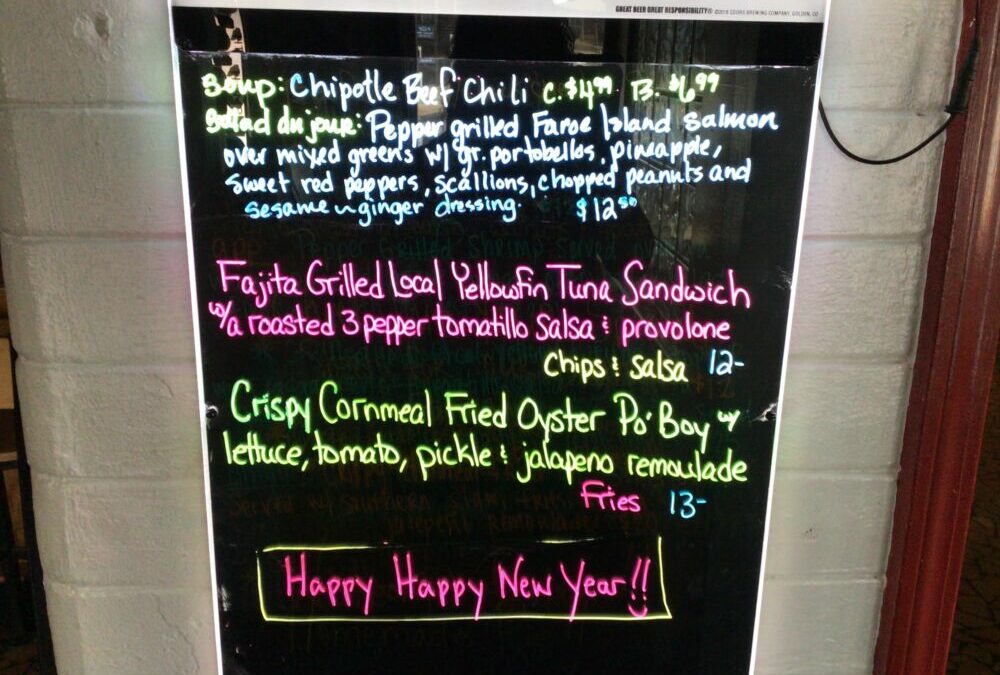 GREAT BEER GREAT RESPONSIBILITY® ©2018 COORS BREWING COMPANY, GOLDEN, CO
Soup: Chipotle Beef Chili C. $4.99 B. $6.99
Salad du jour: Pepper grilled Faroe Island Salmon
over mixed greens w/ gr. portobellos, pineapple,
sweet red peppers, scallions, chopped peanuts and
sesame ginger dressing. $12.50
Fajita Grilled Local Yellowfin Tuna Sandwich
w/a roasted 3 pepper tomatillo salsa & provolone
Chips & Salsa 12-
Crispy Cornmeal Fried Oyster Po' Boy w/
lettuce, tomato, pickle & jalapeno remoulade
Fries 13-
Happy Happy New Year!!